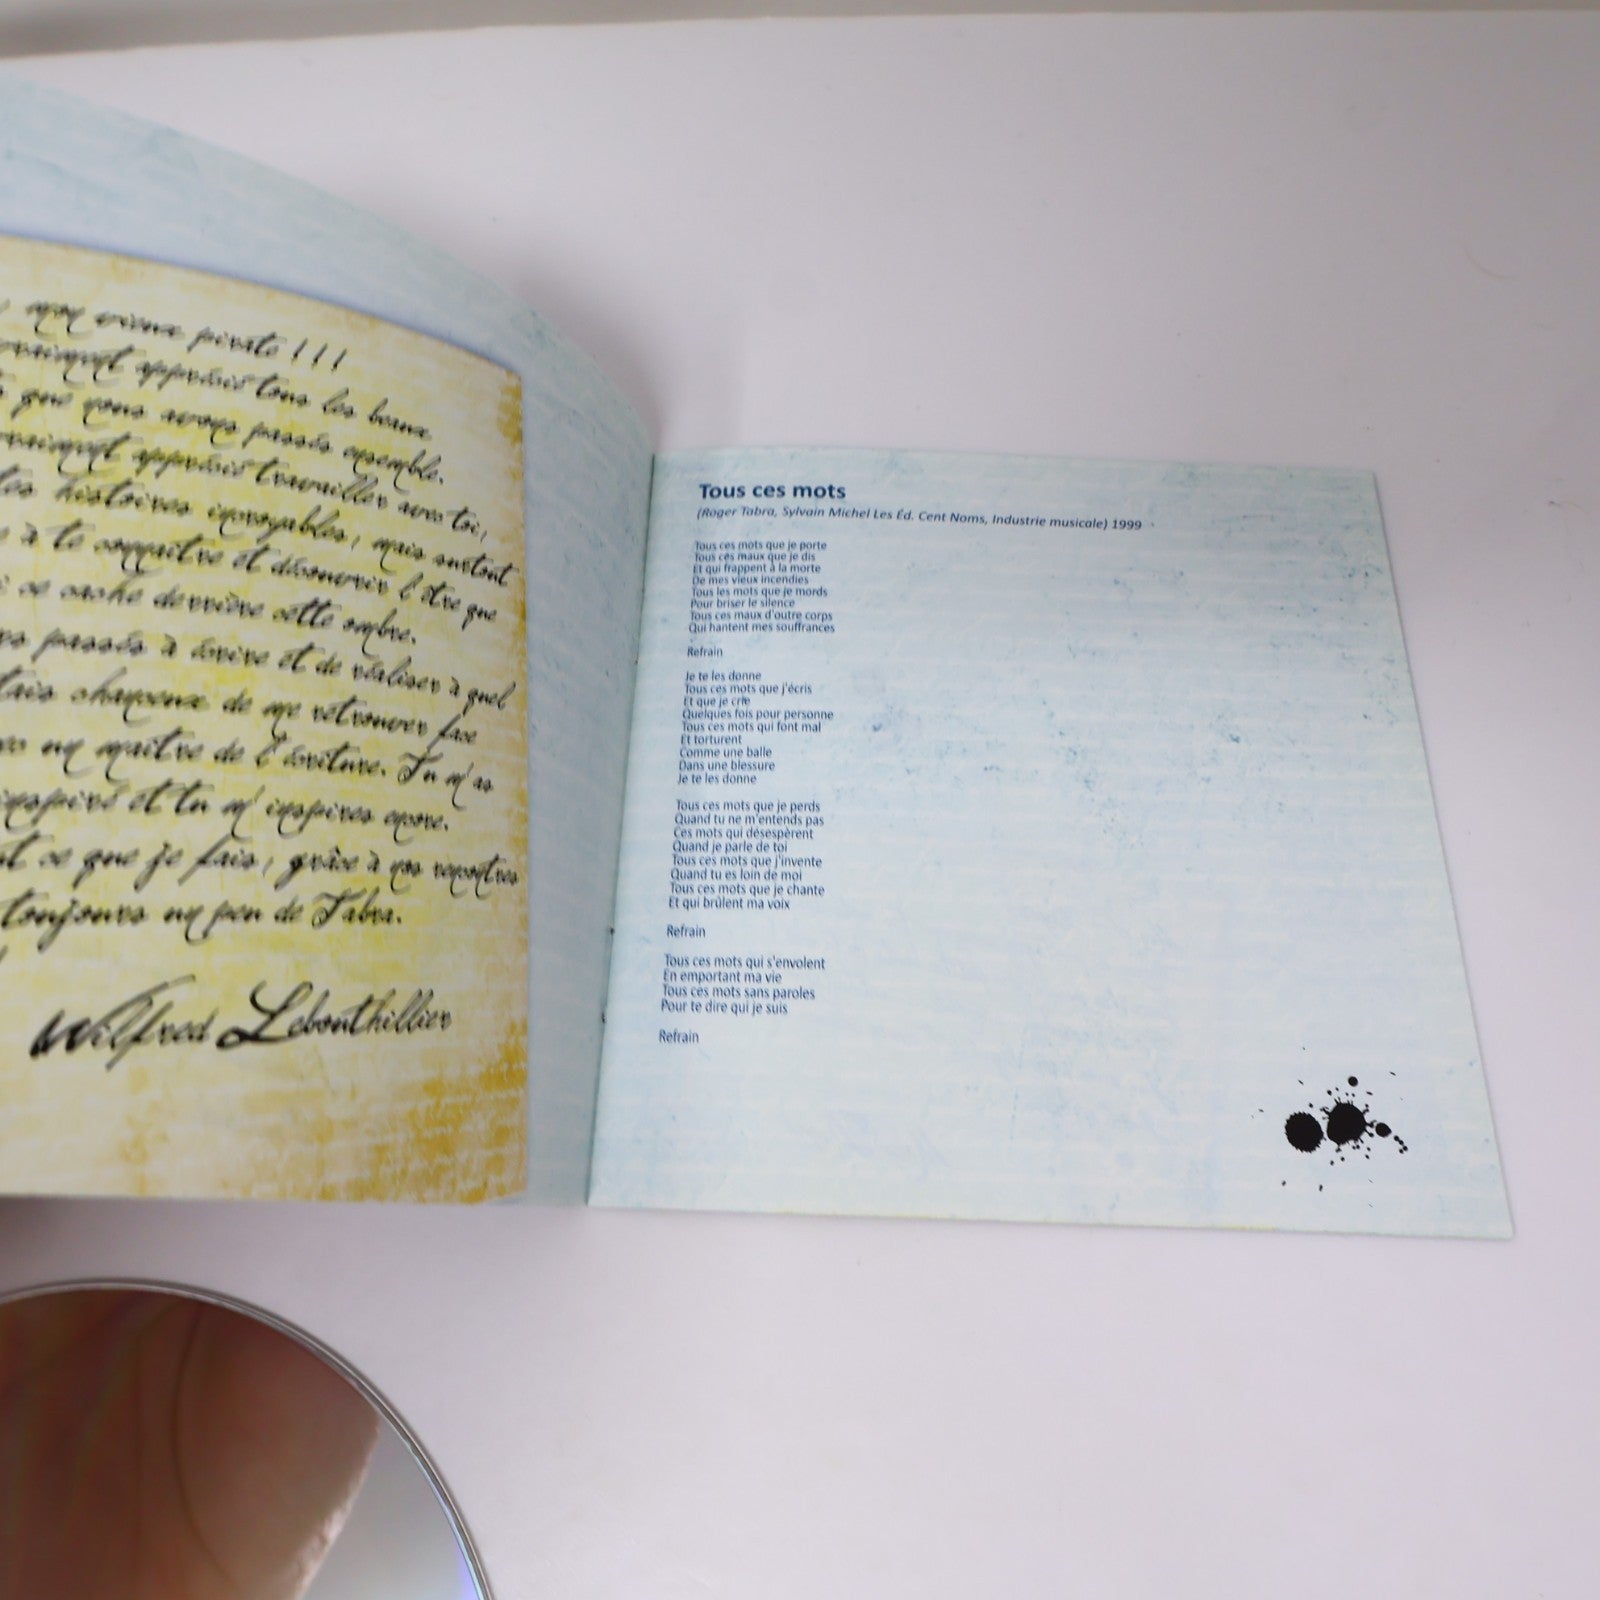 mon vieux pirate !!!
vraiment apprécié tous les beaux
que nous avons passés ensemble.
vraiment apprécié travailler avec toi,
tes histoires incroyables, mais surtout
à te connaître et découvrir l'être que
se cache derrière cette ombre.
passés à écrire et de réaliser à quel
chanceux de me retrouver face
un maître de l'écriture. Tu m'as
inspiré et tu m'inspires encore.
ce que je fais, grâce à nos rencontres
toujours un peu de Tabra.
Wilfred Lebouthillier
Tous ces mots
(Roger Tabra, Sylvain Michel Les Éd. Cent Noms, Industrie musicale) 1999
Tous ces mots que je porte
Tous ces maux que je dis
Et qui frappent à la morte
De mes vieux incendies
Tous les mots que je mords
Pour briser le silence
Tous ces maux d'outre corps
Qui hantent mes souffrances
Refrain
Je te les donne
Tous ces mots que j'écris
Et que je crie
Quelques fois pour personne
Tous ces mots qui font mal
Et torturent
Comme une balle
Dans une blessure
Je te les donne
Tous ces mots que je perds
Quand tu ne m'entends pas
Ces mots qui désespèrent
Quand je parle de toi
Tous ces mots que j'invente
Quand tu es loin de moi
Tous ces mots que je chante
Et qui brûlent ma voix
Refrain
Tous ces mots qui s'envolent
En emportant ma vie
Tous ces mots sans paroles
Pour te dire qui je suis
Refrain